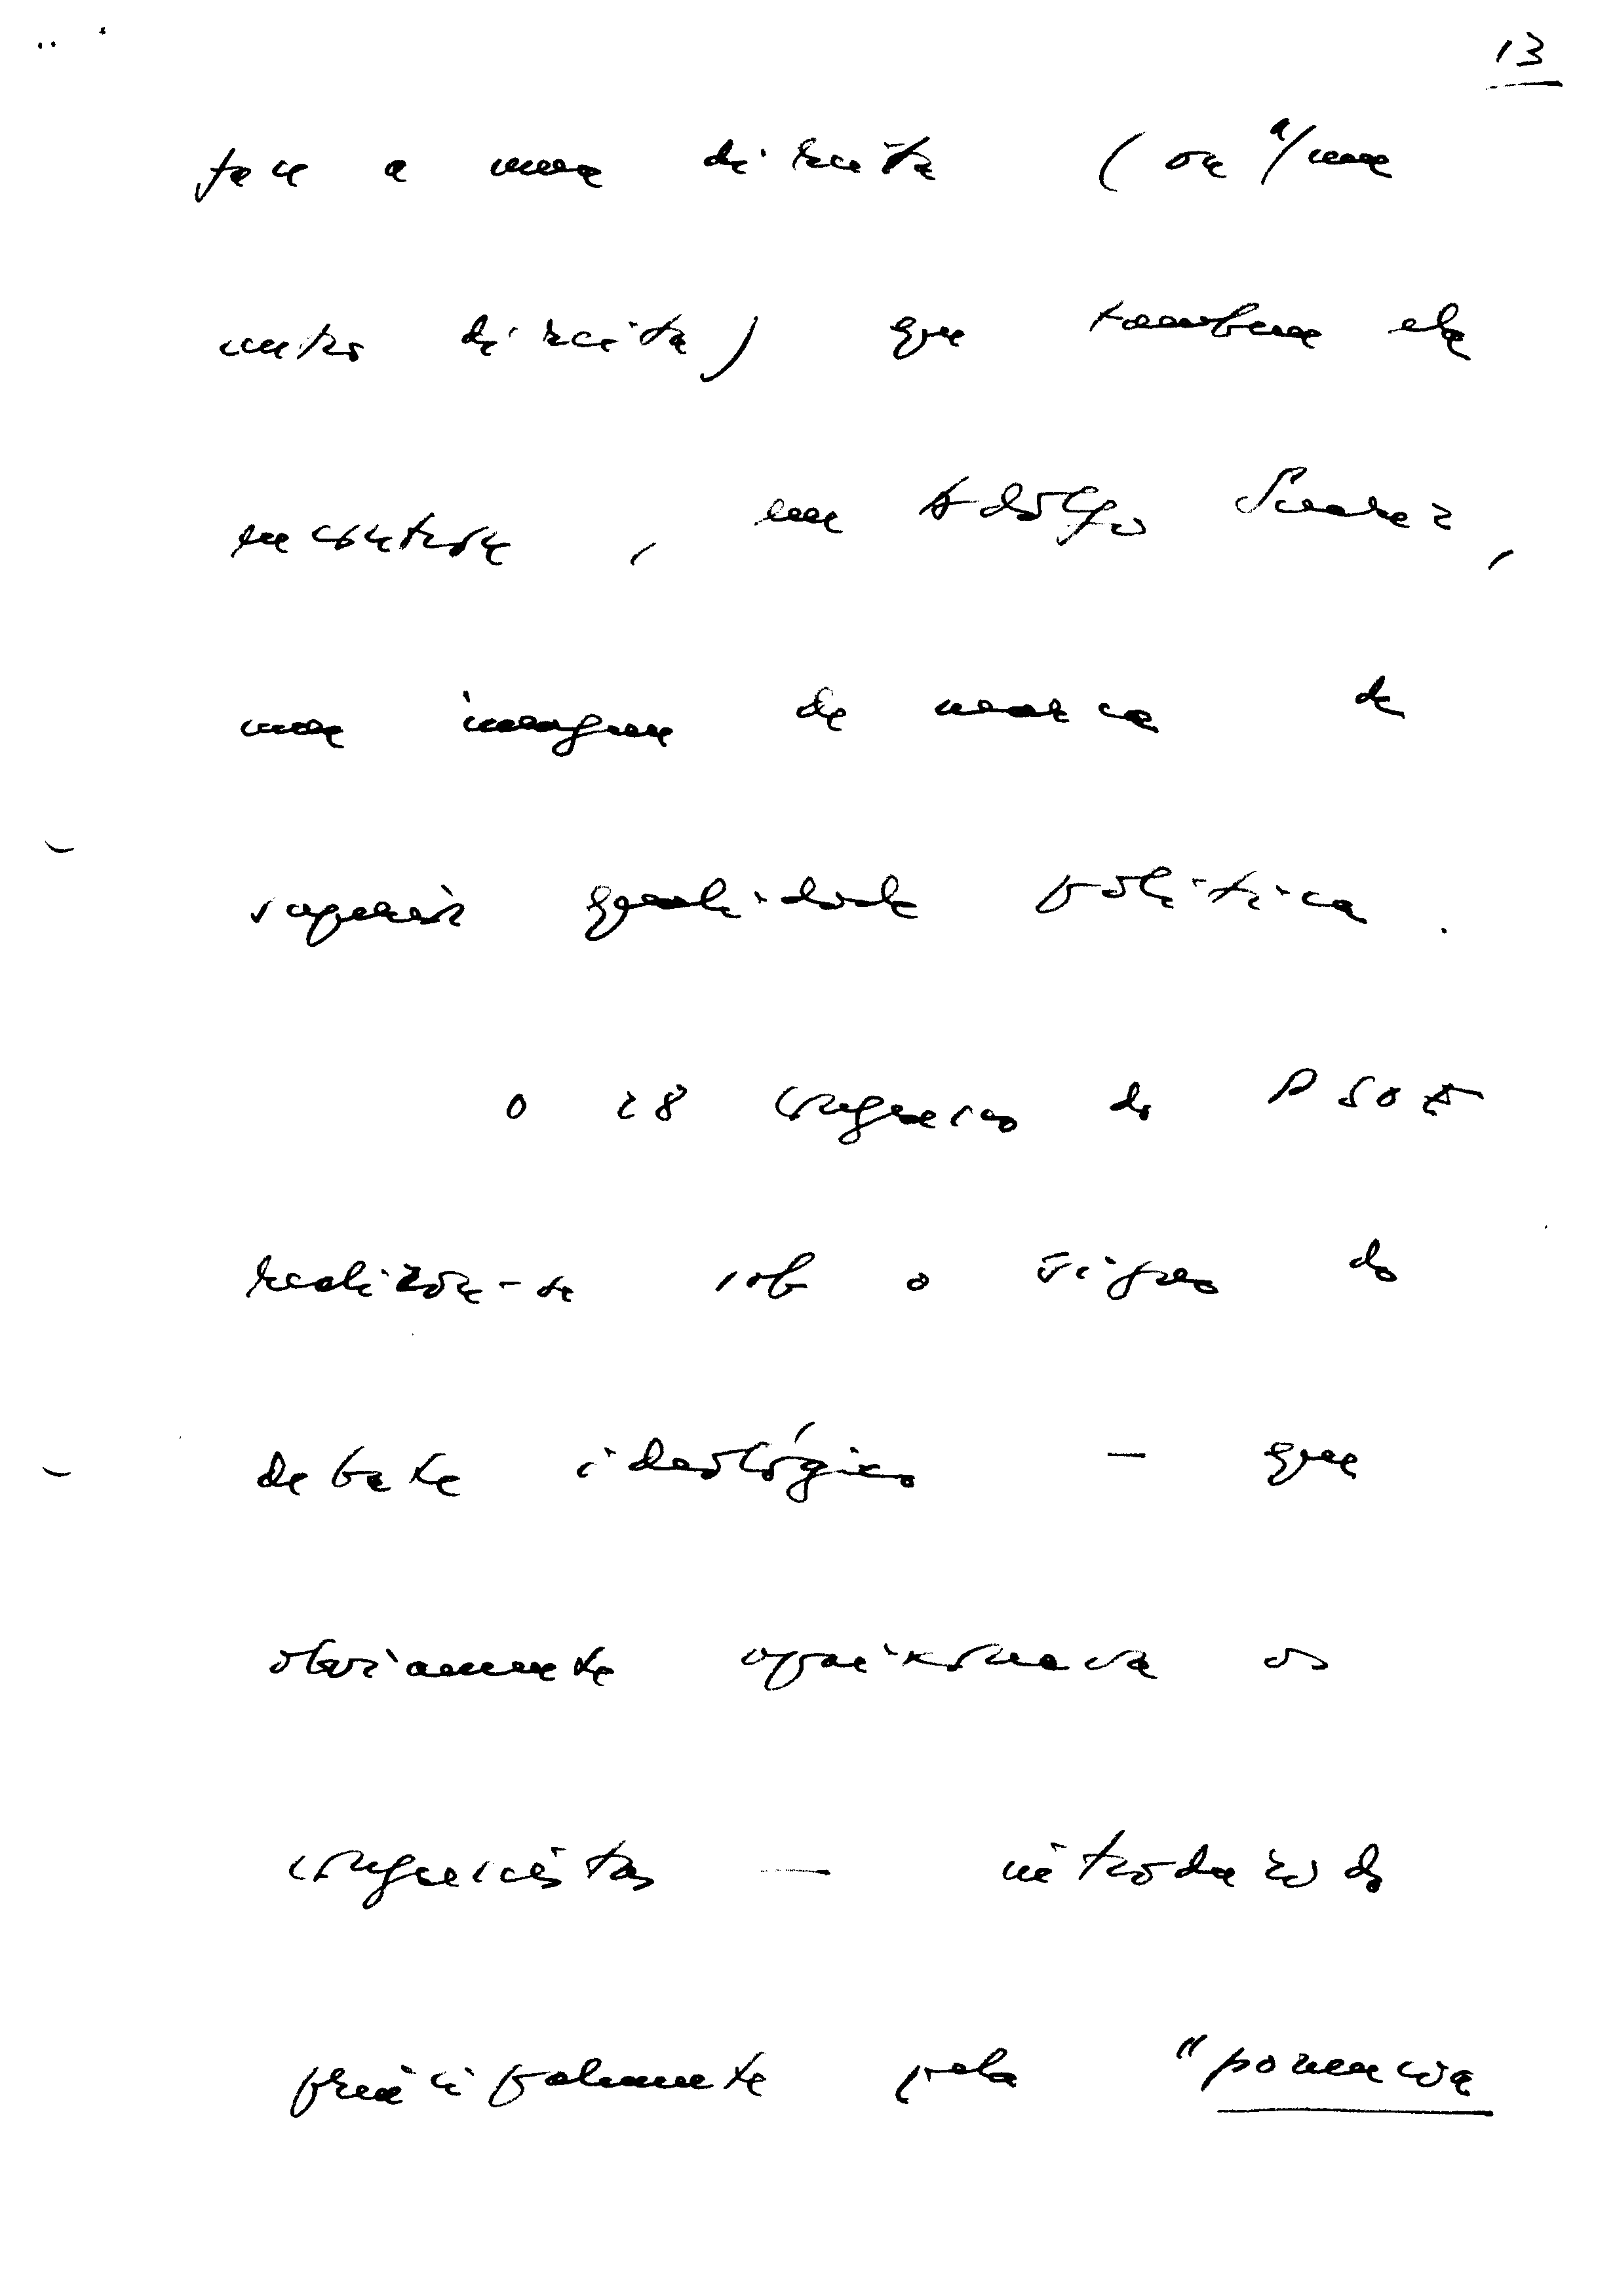 13
face a uma direita (ou a/uma
centro direita) que tambem ela
encontrou, em Adolfo Suarez,
uma imagem de marca de
superior qualidade politica.
O 28 congresso do PSOE
realizou-se sob o signo do
debate ideológico — que
obviamente apaixonava os
congressistas — introduzido
principalmente pela "ponencia